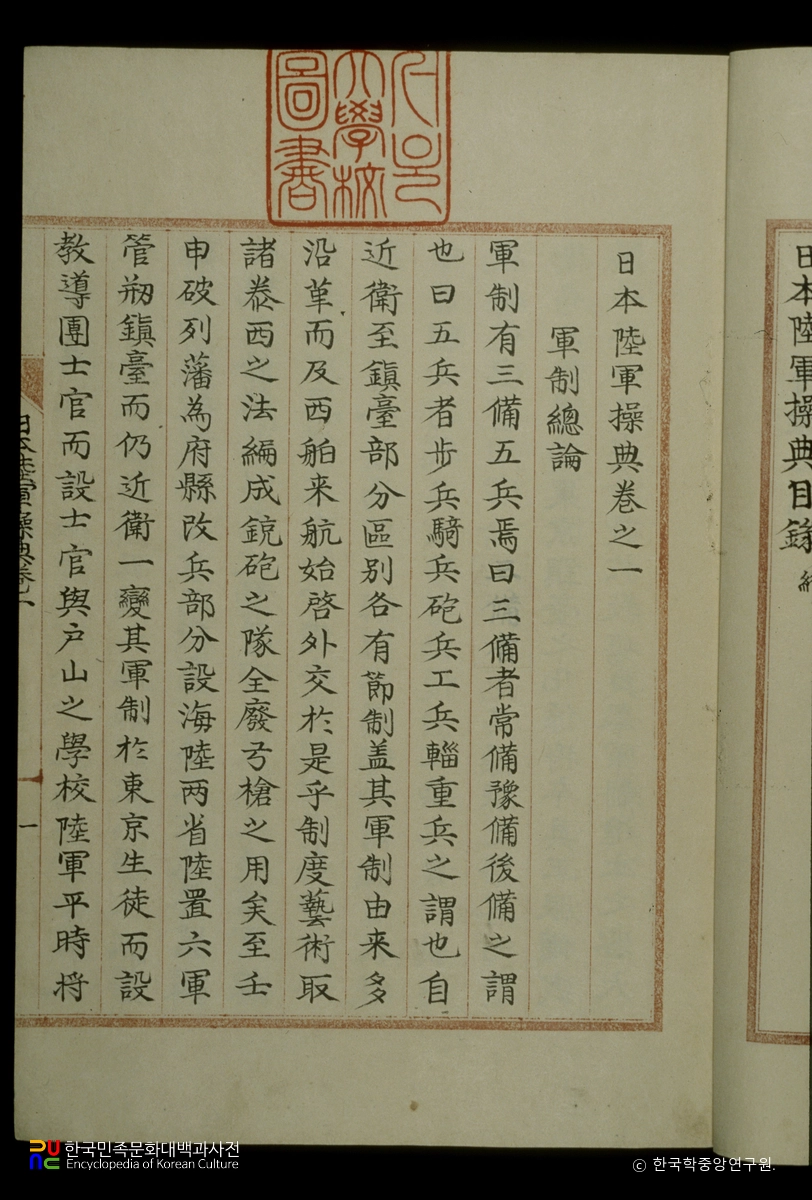 日本陸軍操典目錄
日本陸軍操典卷之一
軍制總論
軍制有三備五兵焉曰三備者常備豫備後備之謂
也曰五兵者步兵騎兵砲兵工兵輜重兵之謂也自
近衛至鎮臺部分區別各有節制盖其軍制由来多
沿革而及西舶来航始啓外交於是乎制度藝術取
諸泰西之法編成銃砲之隊全廢弓槍之用矣至壬
申破列藩為府縣改兵部分設海陸兩省陸置六軍
管剏鎮臺而仍近衛一變其軍制於東京生徒而設
教導團士官而設士官與戶山之學校陸軍平時将
日本陸軍操典卷一
一
大學校
圖書
한국민족문화대백과사전
Encyclopedia of Korean Culture
ⓒ 한국학중앙연구원.